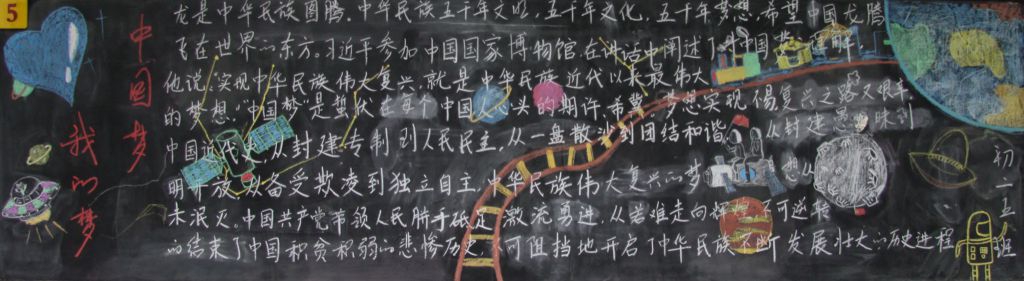 5
中国梦
我的梦
龙是中华民族图腾，中华民族五千年文明，五千年文化，五千年梦想，希望中国龙腾
飞在世界的东方。习近平参加中国国家博物馆，在讲话中阐述了对中国梦理解，
他说："实现中华民族伟大复兴，就是中华民族近代以来最伟大
的梦想。"中国梦"是蛰伏在每个中国人心头的期许、希冀。梦想实现
中国近代史，从封建专制到人民民主，从一盘散沙到团结和谐，从封建愚昧到
明开放，从备受欺凌到独立自主，中华民族伟大复兴的梦想从
未泯灭。中国共产党带领人民胼手砥足，激流勇进，从苦难走向辉煌，不可逆转
的结束了中国积贫积弱的悲惨历史，不可阻挡地开启了中华民族不断发展壮大的历史进程
初一五班